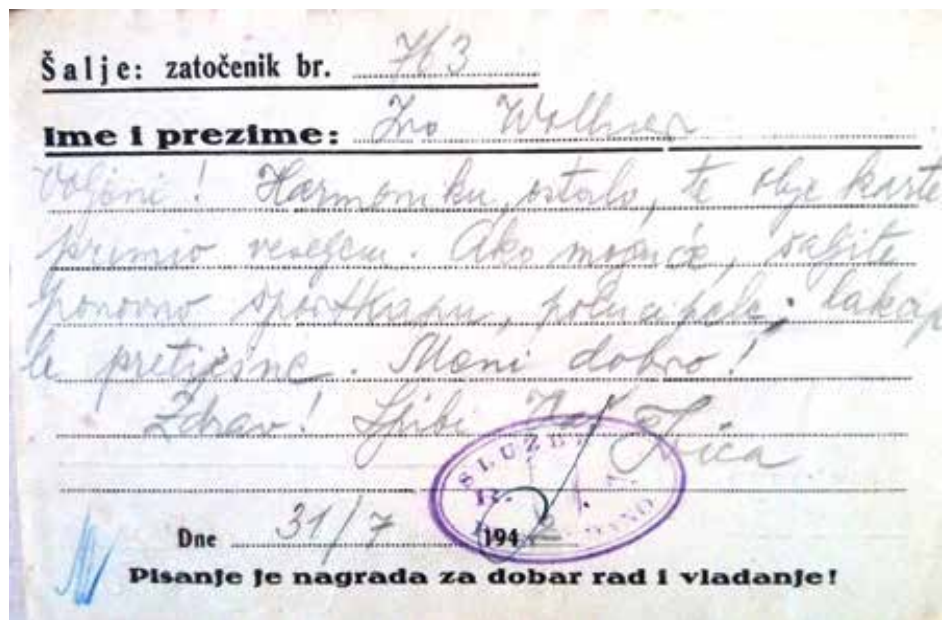 Šalje: zatočenik br. 763
Ime i prezime: Ivo Wollner
Voljeni! Harmoniku, ostalo, te obje karte
primio veseljem. Ako moguće, šaljite
ponovno sportkapu, polucipele;
pretijesne. Meni dobro!
Zdravo! Ljubi Vas Ivica
SLUŽB
Dne 31/7 1942
Pisanje je nagrada za dobar rad i vladanje!